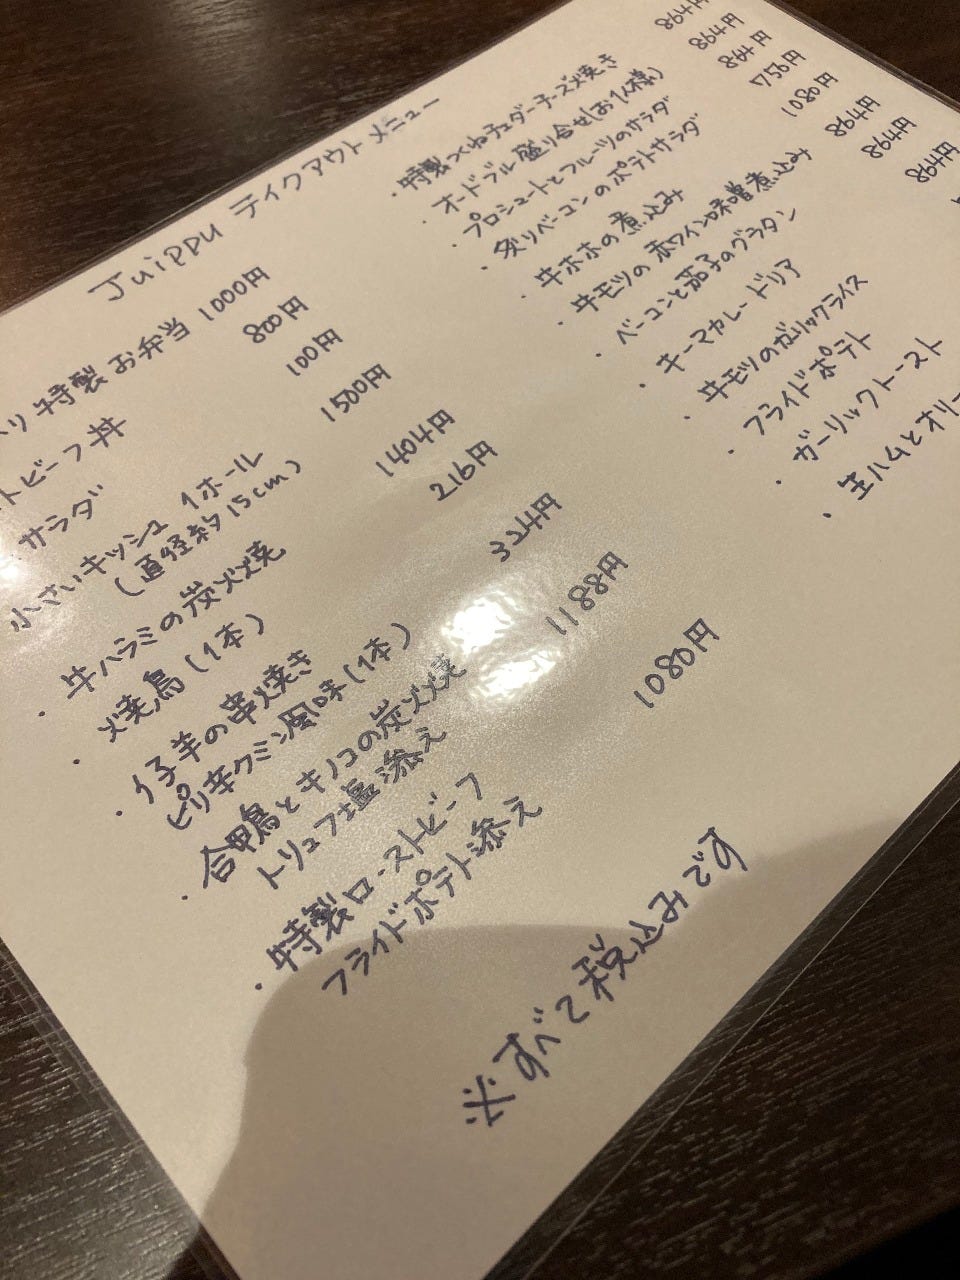 Juippu テイクアウトメニュー
特製お弁当 1000円
トビーフ丼 800円
サラダ 100円
小さいキッシュ 1ホール 1500円
(直径約15cm)
・牛ハラミの炭火焼 1404円
・焼鳥(1本) 216円
・仔羊の串焼き
ピリ辛クミン風味(1本) 324円
・合鴨とキノコの炭火焼
トリュフ塩添え 1188円
・特製ローストビーフ
フライドポテト添え 1080円
・特製つくねチェダーチーズ焼き 864円
・オードブル盛り合せ(お1人様) 864円
・プロシュートとフルーツのサラダ 864円
・炙りベーコンのポテトサラダ 756円
・牛ホホの煮込み 1080円
・牛モツの赤ワイン味噌煮込み
・ベーコンと茄子のグラタン
・キーマカレードリア
・牛モツのガーリックライス
・フライドポテト
・ガーリックトースト
・生ハムとオリー
※すべて税込みです